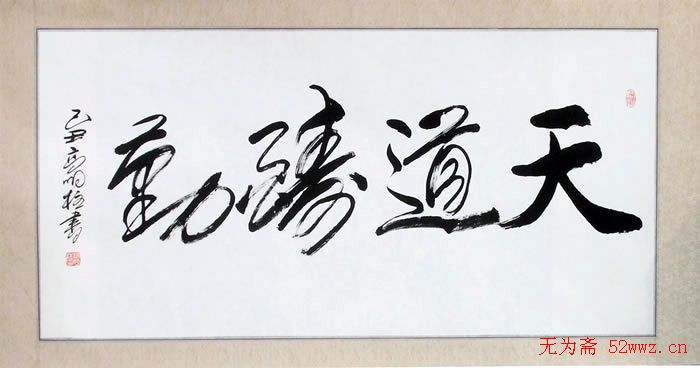 天道酬勤
己丑 明 书
无为斋 52wwz.cn